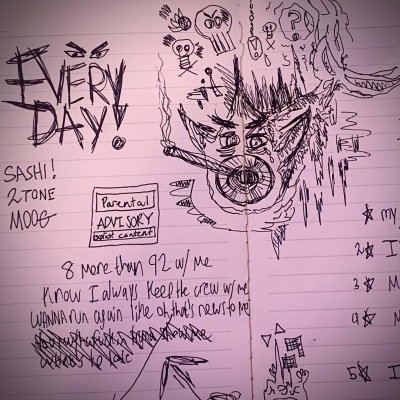 EVERY
DAY!
SASHI!
2 TONE
MOOG
Parental
ADVISORY
Explicit content
8 More than 92 w/ me
Know I always keep the crew w/ me
WANNA run again like oh, that's news to me
1 my
2 I
3 M
4 M
5 I